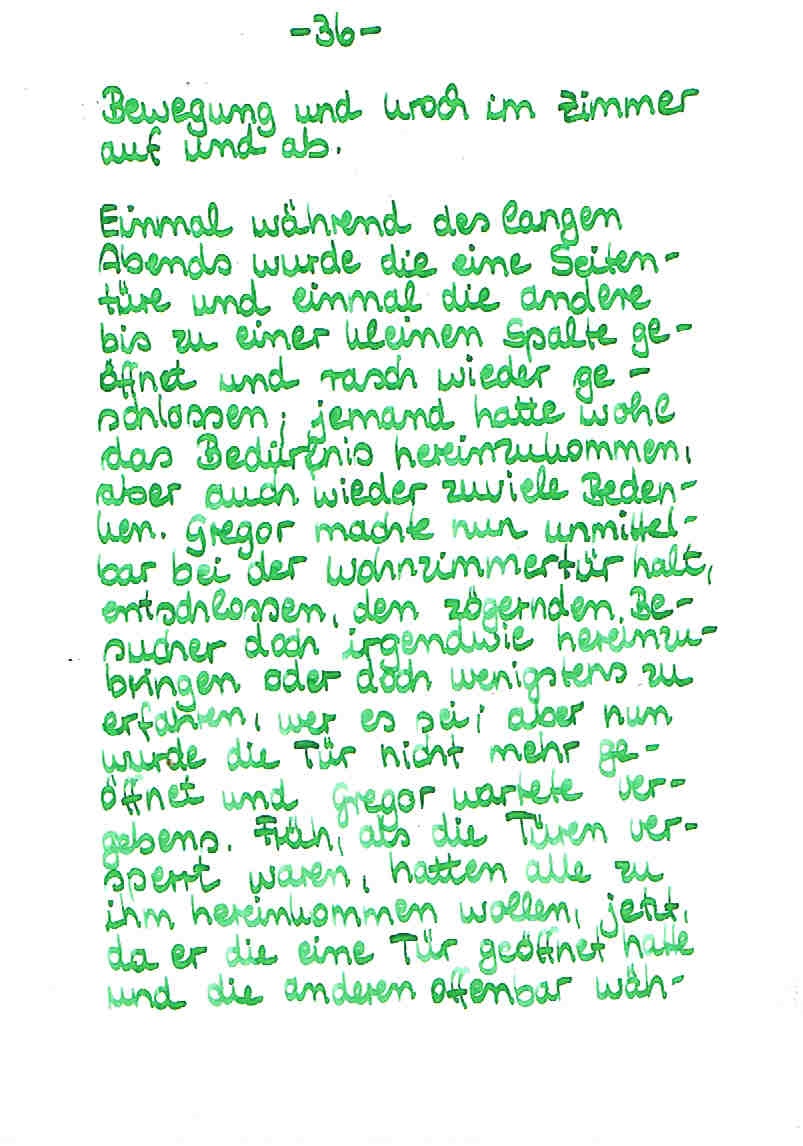 -36-
Bewegung und kroch im Zimmer
auf und ab.
Einmal während des langen
Abends wurde die eine Seiten-
türe und einmal die andere
bis zu einer kleinen Spalte ge-
öffnet und rasch wieder ge-
schlossen; jemand hatte wohl
das Bedürfnis hereinzukommen,
aber auch wieder zuviele Beden-
ken. Gregor machte nun unmittel-
bar bei der Wohnzimmertür halt,
entschlossen, den zögernden Be-
sucher doch irgendwie hereinzu-
bringen oder doch wenigstens zu
erfahren, wer es sei; aber nun
wurde die Tür nicht mehr ge-
öffnet und Gregor wartete ver-
gebens. Früh, als die Türen ver-
sperrt waren, hatten alle zu
ihm hereinkommen wollen, jetzt,
da er die eine Tür geöffnet hatte
und die anderen offenbar wäh-